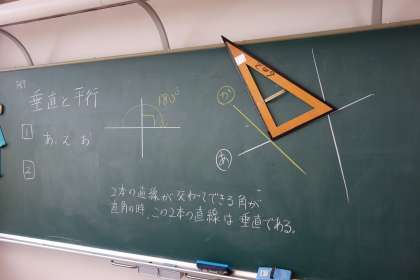 垂直と平行
180°
1 あ、え、お
2
か
あ
2本の直線が交わってできる角が
直角の時、この2本の直線は垂直である。